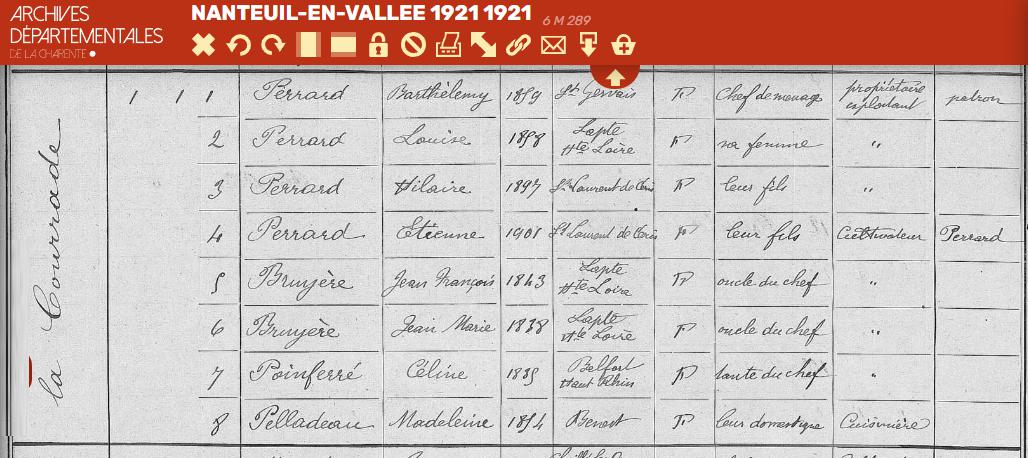 ARCHIVES
DÉPARTEMENTALES
DE LA CHARENTE
NANTEUIL-EN-VALLEE 1921 1921 6 M 289
la Courrade
1 1 1 Perrard Barthélemy 1859 St Gervais F Chef de menage propriétaire exploitant patron
2 Perrard Louise 1858 Lapte Hte Loire F sa femme "
3 Perrard Hilaire 1897 St Laurent de Céris F leur fils "
4 Perrard Etienne 1901 St Laurent de Céris F leur fils Cultivateur Perrard
5 Bruyère Jean François 1843 Lapte Hte Loire F oncle du chef "
6 Bruyère Jean Marie 1838 Lapte Hte Loire F oncle du chef "
7 Poinferré Céline 1835 Belfort Haut Rhin F tante du chef "
8 Pelladeau Madeleine 1854 Benest F leur domestique Cuisinière